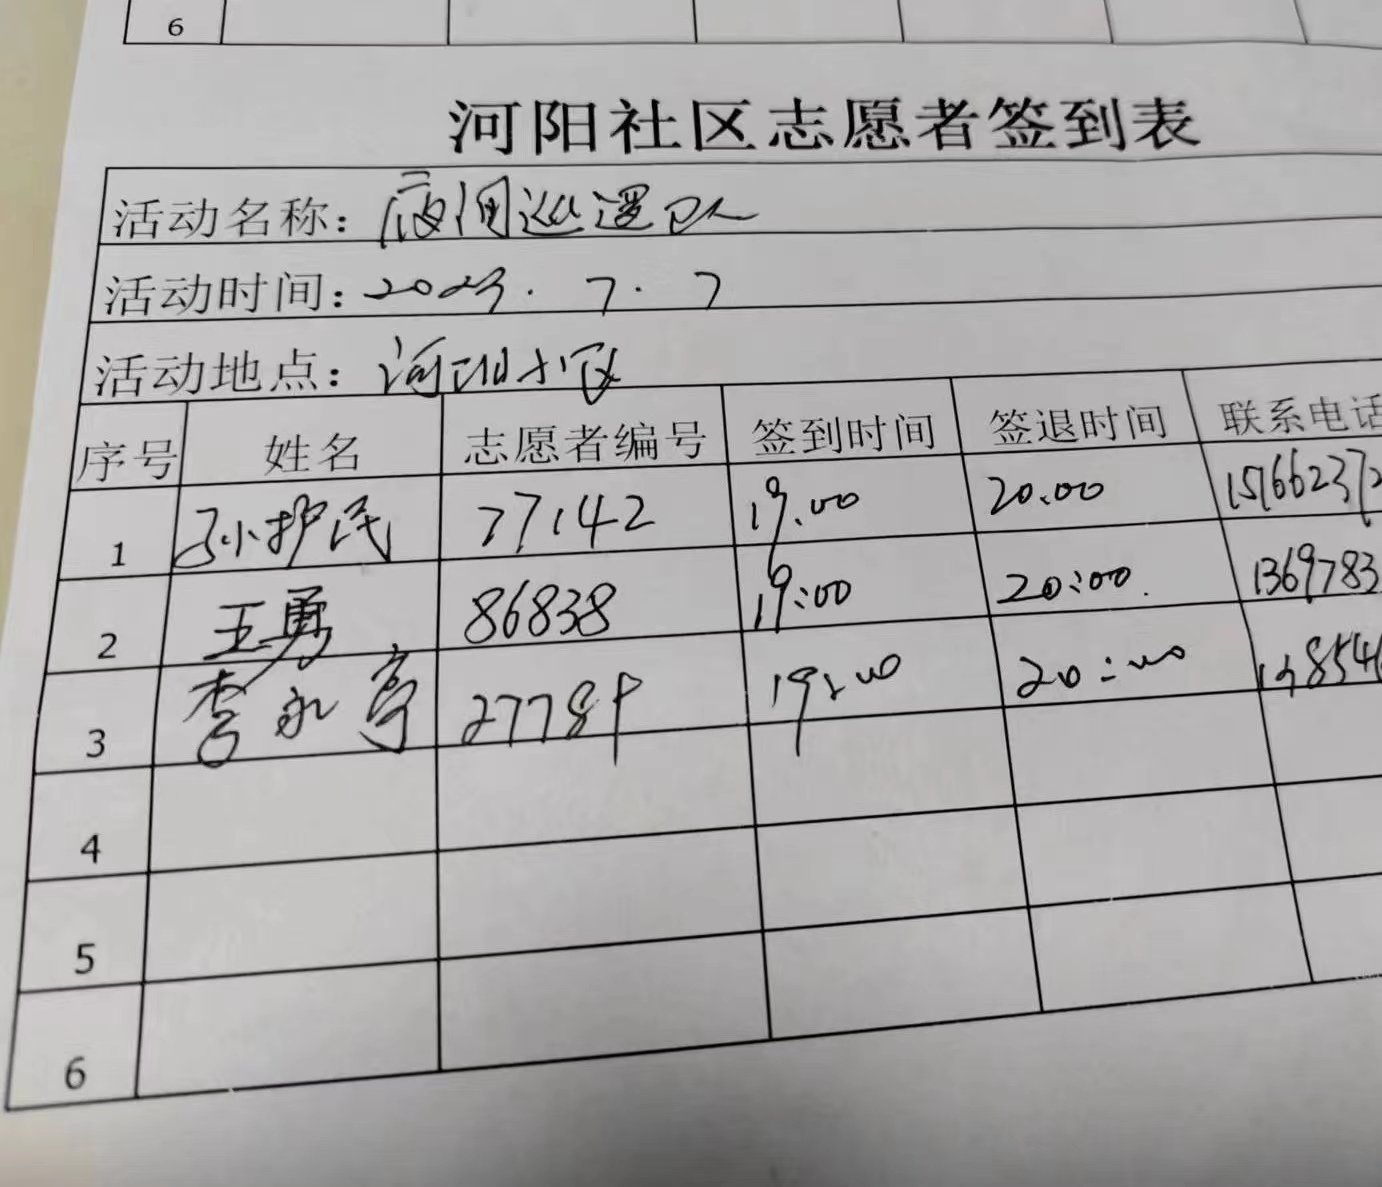 6
河阳社区志愿者签到表
活动名称：夜间巡逻队
活动时间：2023.7.7
活动地点：河阳小区
序号 姓名 志愿者编号 签到时间 签退时间 联系电话
1 孙护民 77142 19:00 20:00 151662372
2 王勇 86838 19:00 20:00 1369783
3 李永亭 27789 19:00 20:00
4
5
6